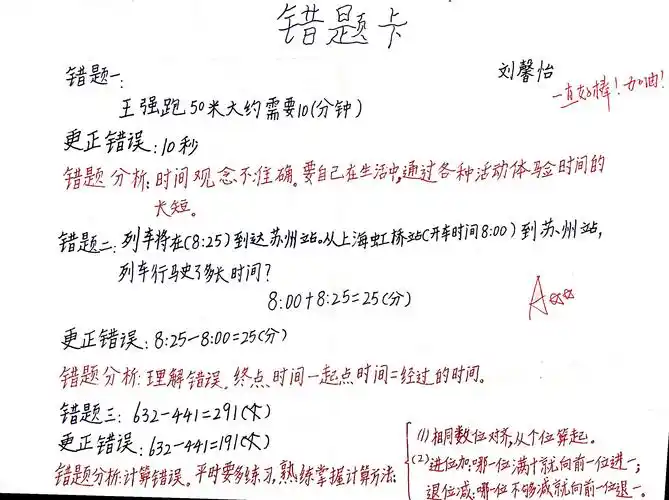 错题卡
错题一:
刘馨怡
一直好棒!加油!
王强跑50米大约需要10(分钟)
更正错误:10秒
错题分析:时间观念不准确。要自己在生活中,通过各种活动体验时间的
长短。
错题二:列车将在(8:25)到达苏州站。从上海虹桥站(开车时间8:00)到苏州站,
列车行驶了多长时间?
8:00+8:25=25(分)
A☆☆
更正错误:8:25-8:00=25(分)
错题分析:理解错误。终点时间-起点时间=经过的时间。
错题三:632-441=291(本)
更正错误:632-441=191(本)
错题分析:计算错误。平时要多练习,熟练掌握计算方法:
(1)相同数位对齐,从个位算起。
(2)进位加:哪一位满十就向前一位进一;
退位减:哪一位不够减就向前一位退一。